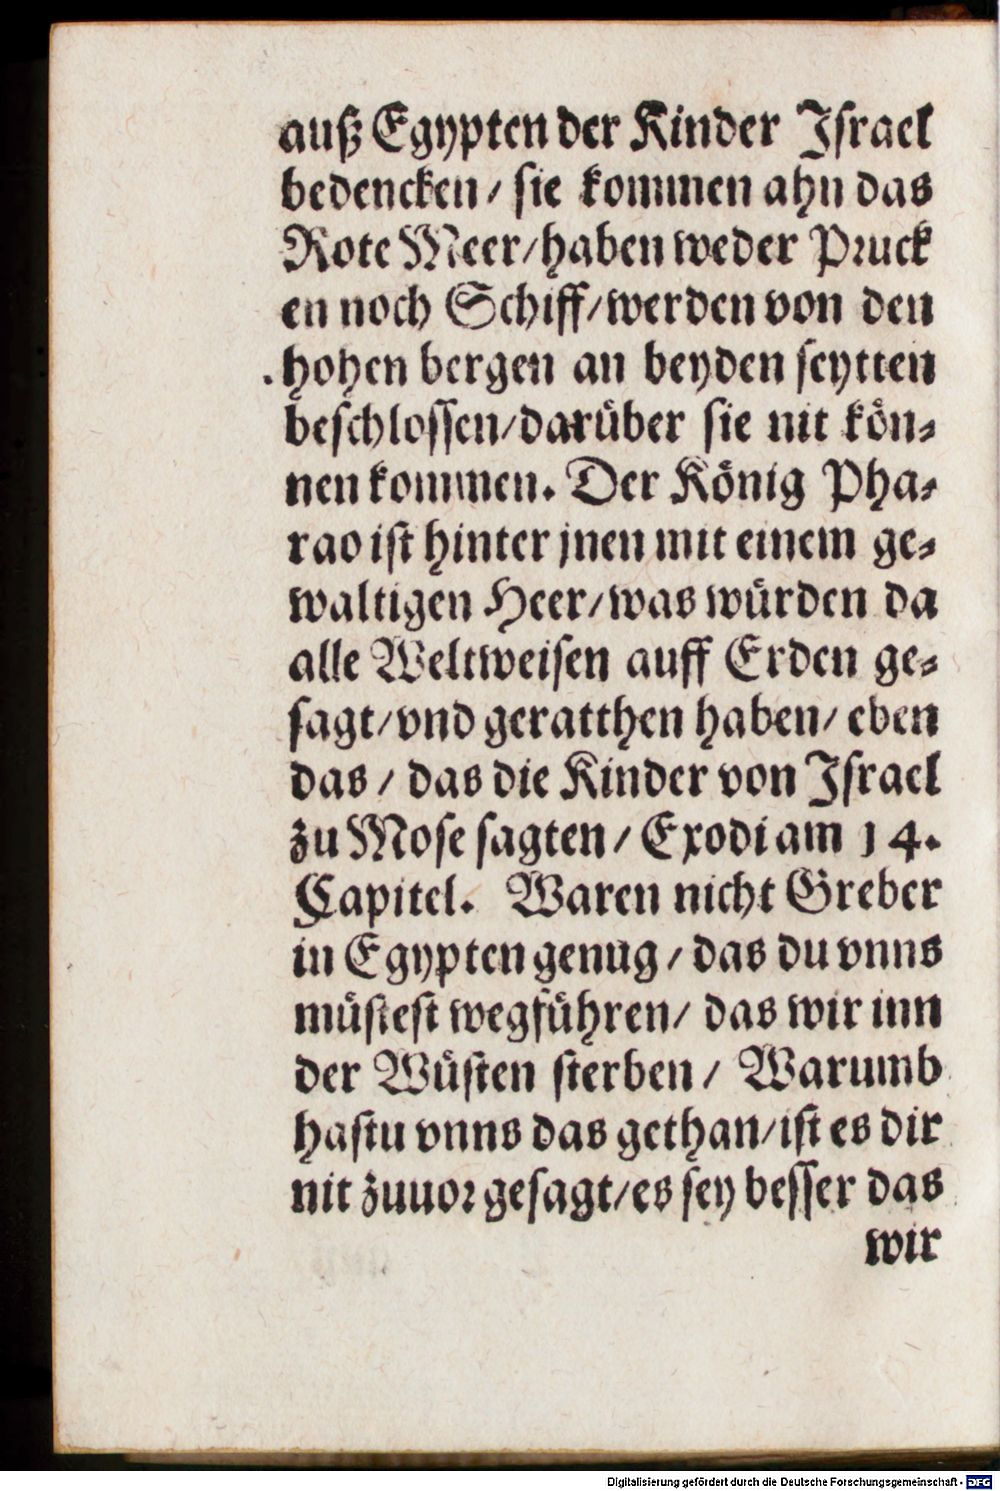 auß Egypten der Kinder Iſrael
bedencken / ſie kommen ahn das
Rote Meer / haben weder Pꝛuck
en noch Schiff / werden von den
hohen bergen an beyden ſeytten
beſchloſſen / darüber ſie nit kön⸗
nen kommen. Der König Pha⸗
rao iſt hinter jnen mit einem ge⸗
waltigen Heer / was würden da
alle Weltweiſen auff Erden ge⸗
ſagt / vnd geratthen haben / eben
das / das die Kinder von Iſrael
zu Moſe ſagten / Exodi am 14.
Capitel. Waren nicht Greber
in Egypten genug / das du vnns
müſteſt wegführen / das wir inn
der Wüſten ſterben / Warumb
haſtu vnns das gethan / iſt es dir
nit zuuoꝛ geſagt / es ſey beſſer das
wir
Digitalisierung gefördert durch die Deutsche Forschungsgemeinschaft - DFG